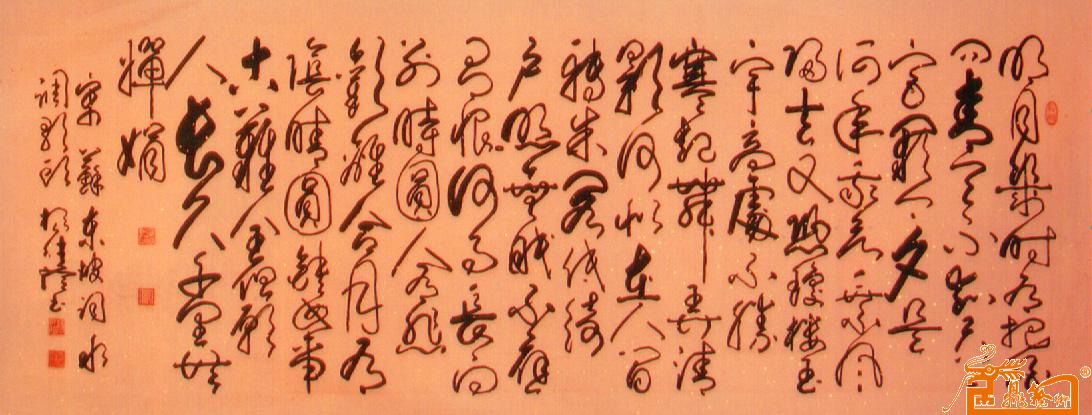 明月幾时有把酒
问青天不知天上
宫阙今夕是
何年我欲乘风
归去又恐瓊樓玉
宇高處不勝
寒起舞弄清
影何似在人间
轉朱阁低綺
户照無眠不應
有恨何事長向
别時圓人有悲
歡離合月有
陰晴圓缺此事
古難全但願
人長久千里共
嬋娟
宋蘇東坡词水
调歌头 书